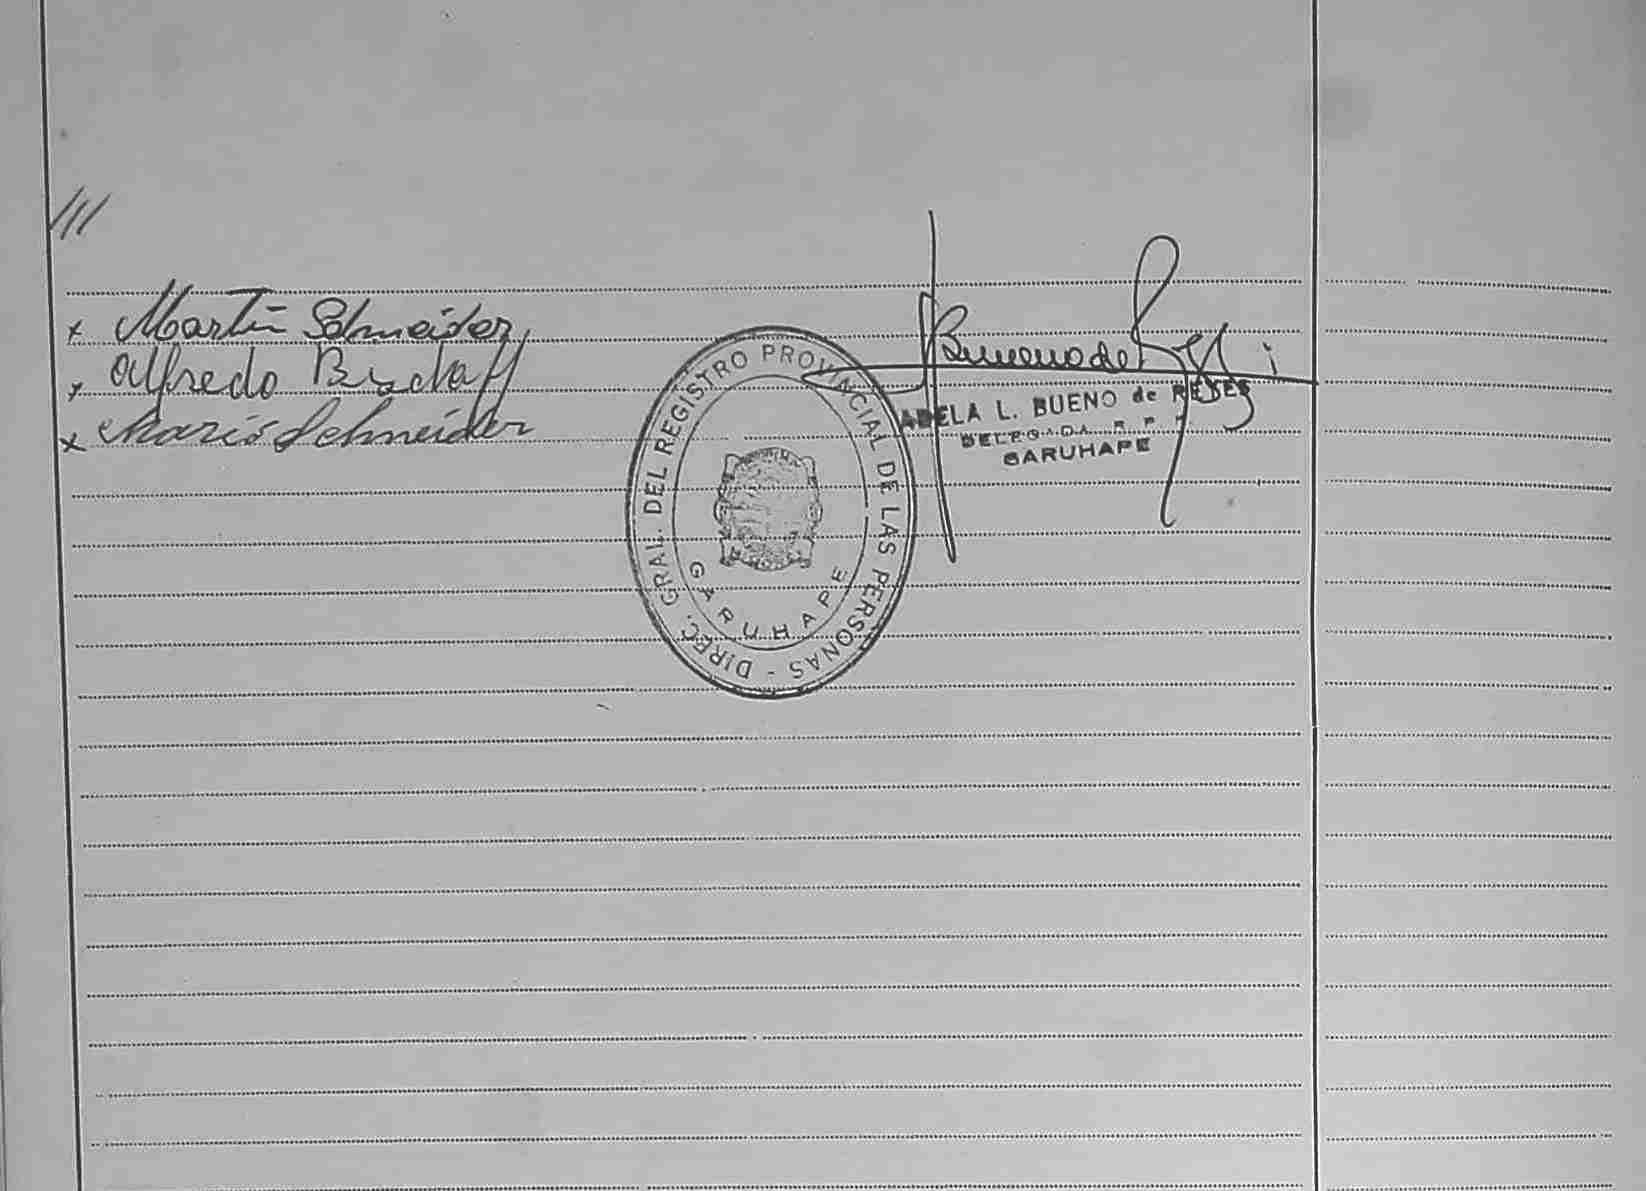 ///
x Martín Schneider
x Alfredo Bischoff
x Mario Schneider
DIREC. GRAL. DEL REGISTRO PROVINCIAL DE LAS PERSONAS -
GARUHAPE
Bueno de Reyes
ADELA L. BUENO de REYES
DELEGADA R. P.
GARUHAPE